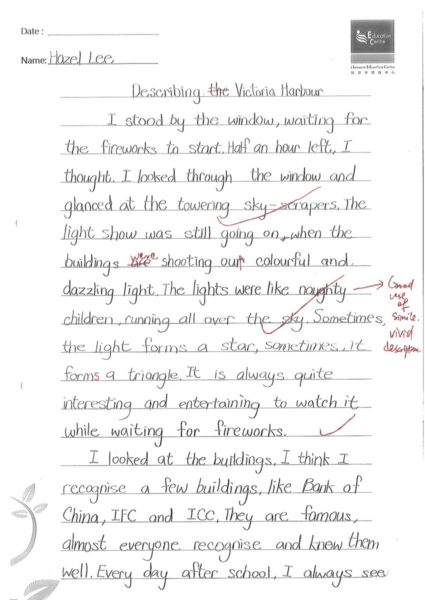 Date :
Education
Centre
Name: Hazel Lee
Describing the Victoria Harbour
I stood by the window, waiting for
the fireworks to start. Half an hour left, I
thought. I looked through the window and
glanced at the towering sky-scrapers. The
light show was still going on, when the
buildings were shooting out colourful and
dazzling light. The lights were like naughty
Good use of simile. vivid description.
children, running all over the sky. Sometimes,
the light forms a star, sometimes, it
forms a triangle. It is always quite
interesting and entertaining to watch it
while waiting for fireworks.
I looked at the buildings. I think I
recognise a few buildings, like Bank of
China, IFC and ICC. They are famous,
almost everyone recognise and knew them
well. Every day after school, I always see